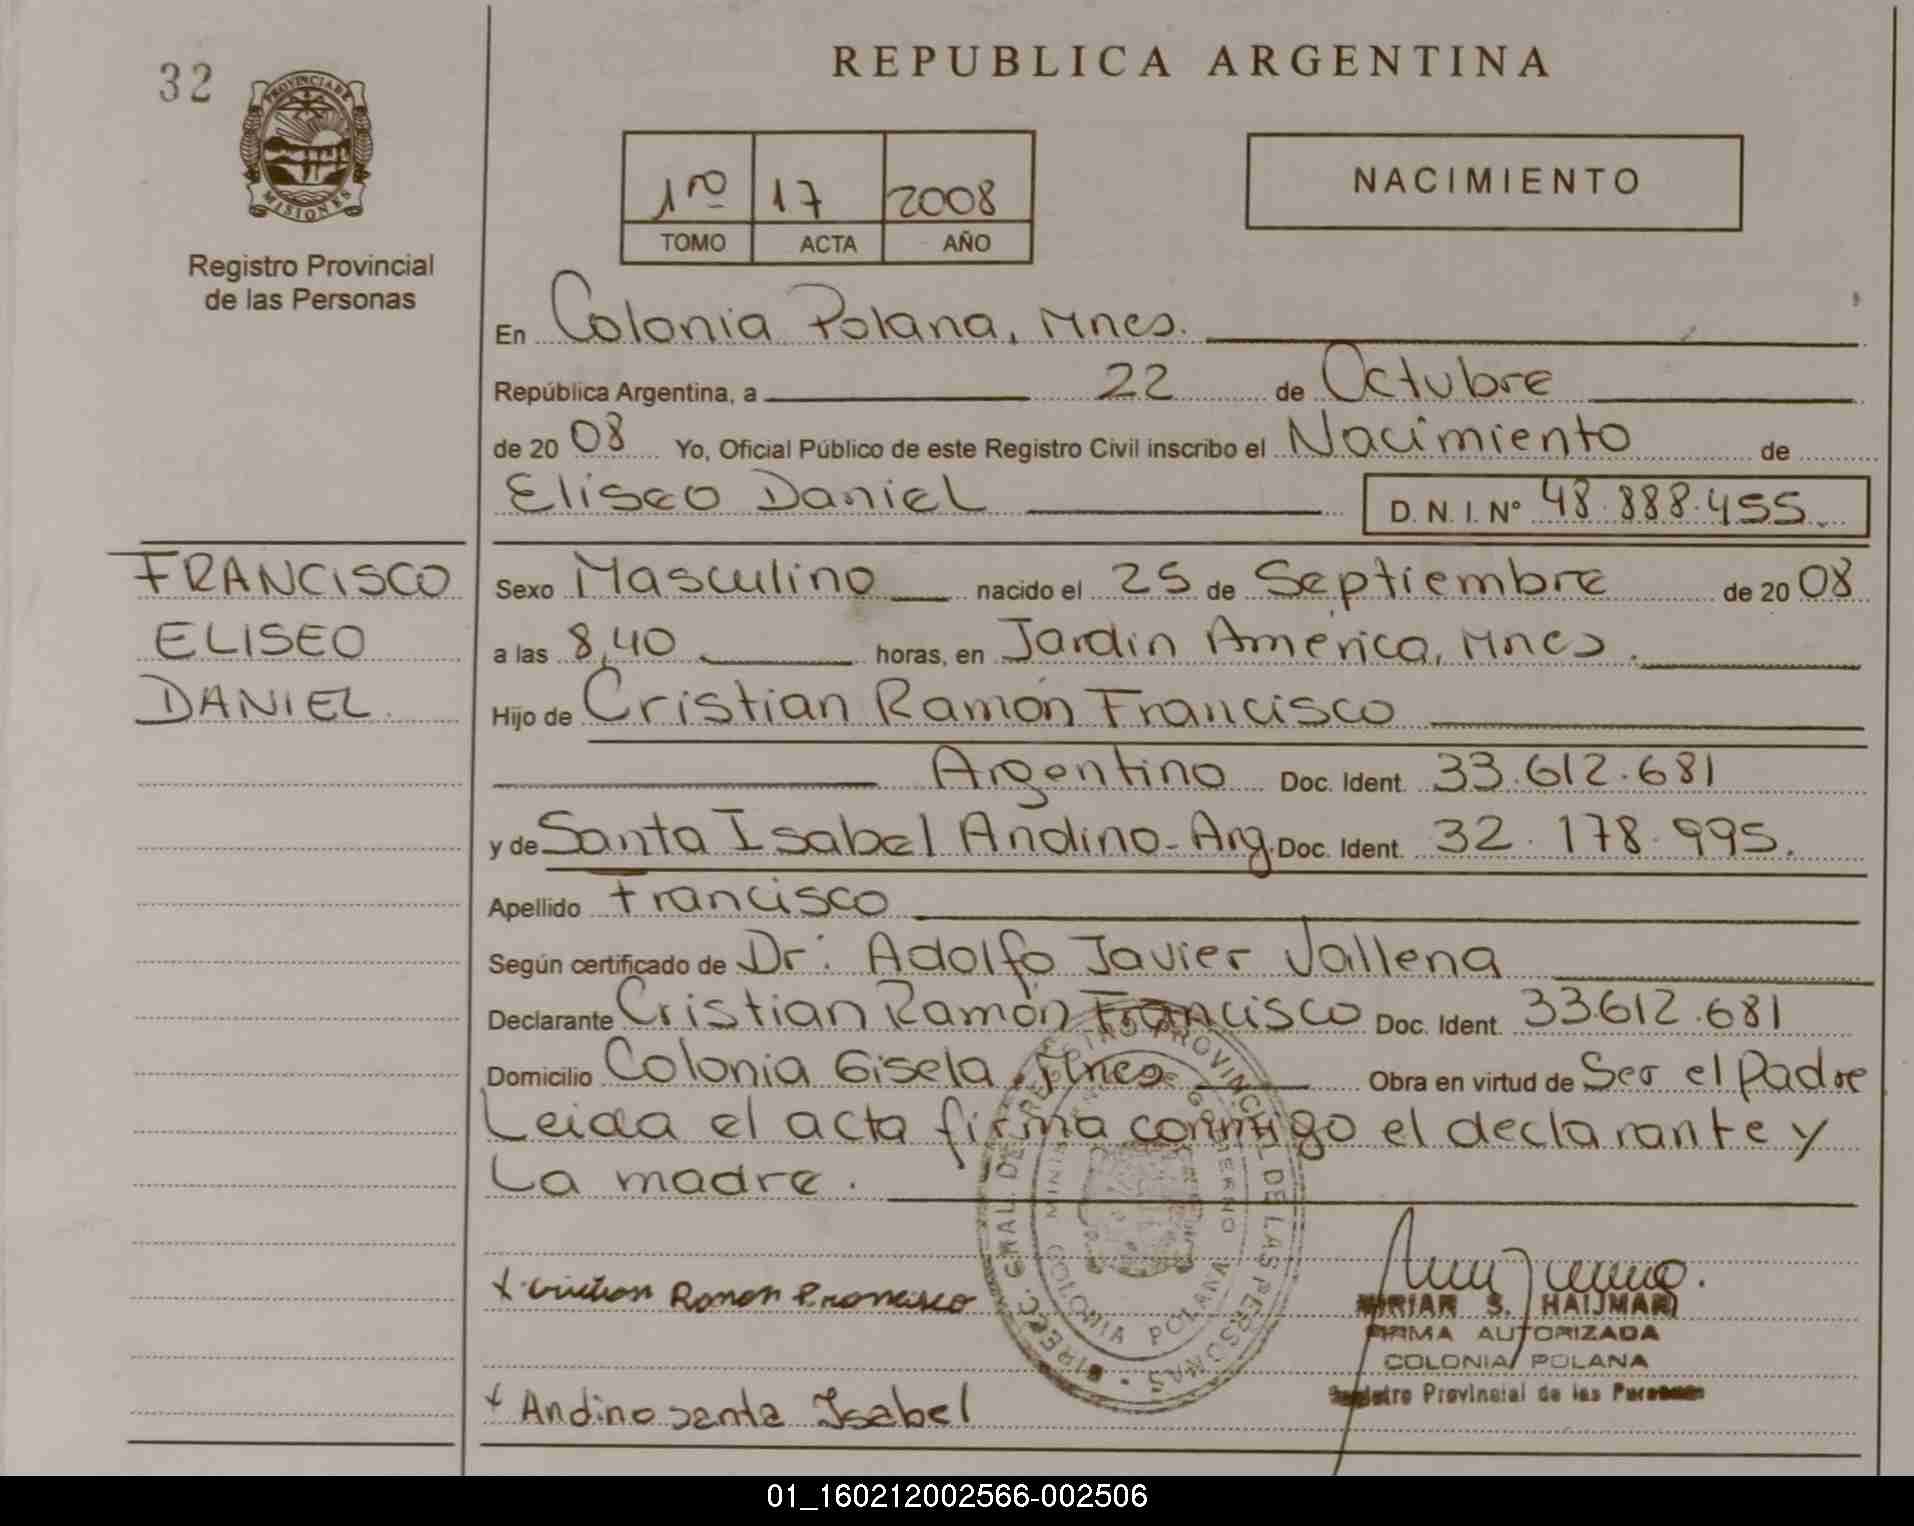 32
PROVINCIA DE
MISIONES
Registro Provincial
de las Personas
REPUBLICA ARGENTINA
1ro 17 2008
TOMO ACTA AÑO
NACIMIENTO
En Colonia Polana, Mnes.
República Argentina, a 22 de Octubre
de 20 08 Yo, Oficial Público de este Registro Civil inscribo el Nacimiento de
Eliseo Daniel D. N. I. Nº 48.888.455.
FRANCISCO
ELISEO
DANIEL.
Sexo Masculino nacido el 25 de Septiembre de 20 08
a las 8,40 horas, en Jardín América, Mnes.
Hijo de Cristian Ramón Francisco
Argentino Doc. Ident. 33.612.681
y de Santa Isabel Andino-Arg. Doc. Ident. 32.178.995.
Apellido Francisco
Según certificado de Dr: Adolfo Javier Vallena
Declarante Cristian Ramón Francisco Doc. Ident. 33612.681
Domicilio Colonia Gisela, Mnes Obra en virtud de Ser el Padre
Leida el acta firma conmigo el declarante y
La madre.
DIRECC. GRAL. DEL REGISTRO PROVINCIAL DE LAS PERSONAS
GOBIERNO
COLONIA POLANA
x Cristian Ramon Francisco
MIRIAN S. HAIJMAN
FIRMA AUTORIZADA
COLONIA POLANA
Registro Provincial de las Personas
x Andino santa Isabel
01_160212002566-002506